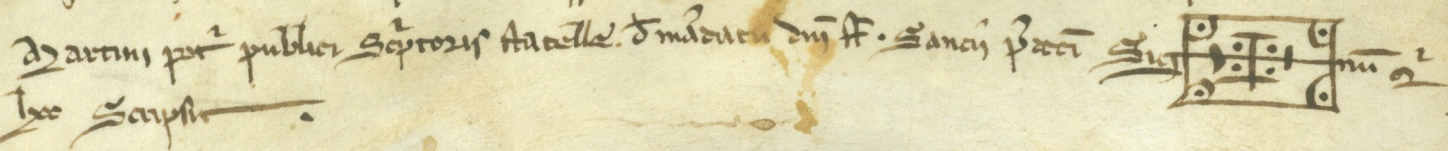 Martini pet publici Scptoris Statelle. d mandatu dni ff. Sancii pdcti Sig num q
hoc Scripsit.